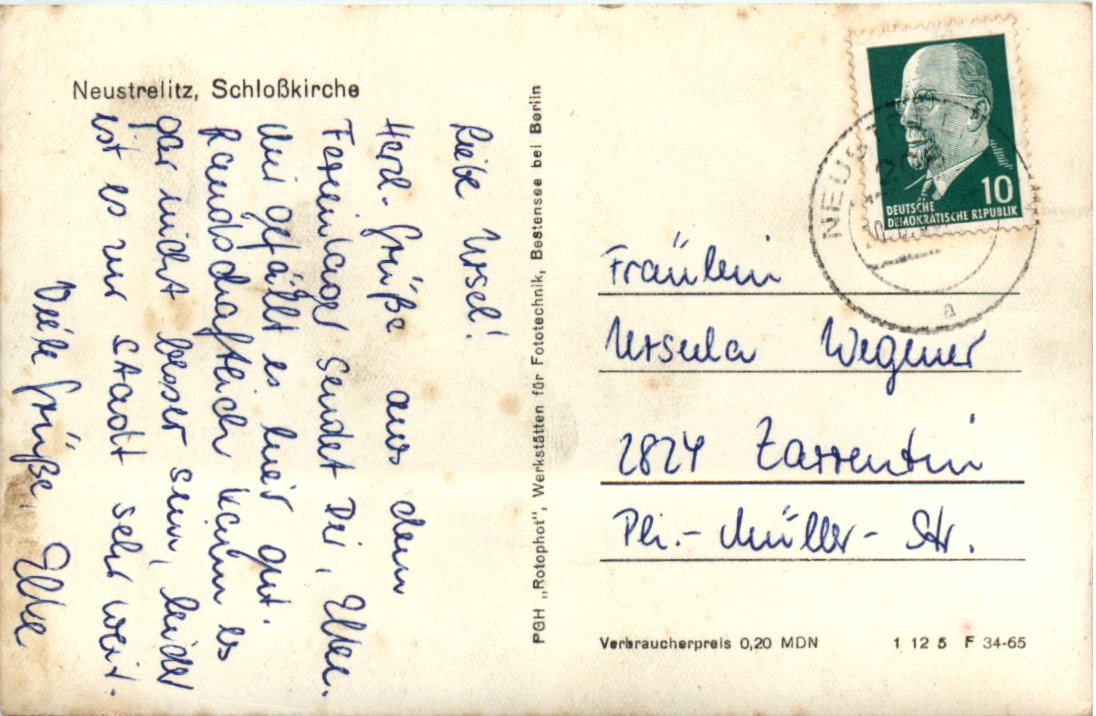 Neustrelitz, Schloßkirche
Liebe Ursel!
Herzl. Grüße aus dem
Ferienlager sendet Dir, Elke.
Mir gefällt es hier gut.
Landschaftlich kann es
gar nicht besser sein, leider
ist es zur Stadt sehr weit.
Viele Grüße, Elke
PGH „Rotophot“, Werkstätten für Fototechnik, Bestensee bei Berlin
10
DEUTSCHE
DEMOKRATISCHE REPUBLIK
a
Fräulein
Ursula Wegener
2824 Zarrentin
Ph.-Müller-Str.
Verbraucherpreis 0,20 MDN
1 12 5 F 34-65